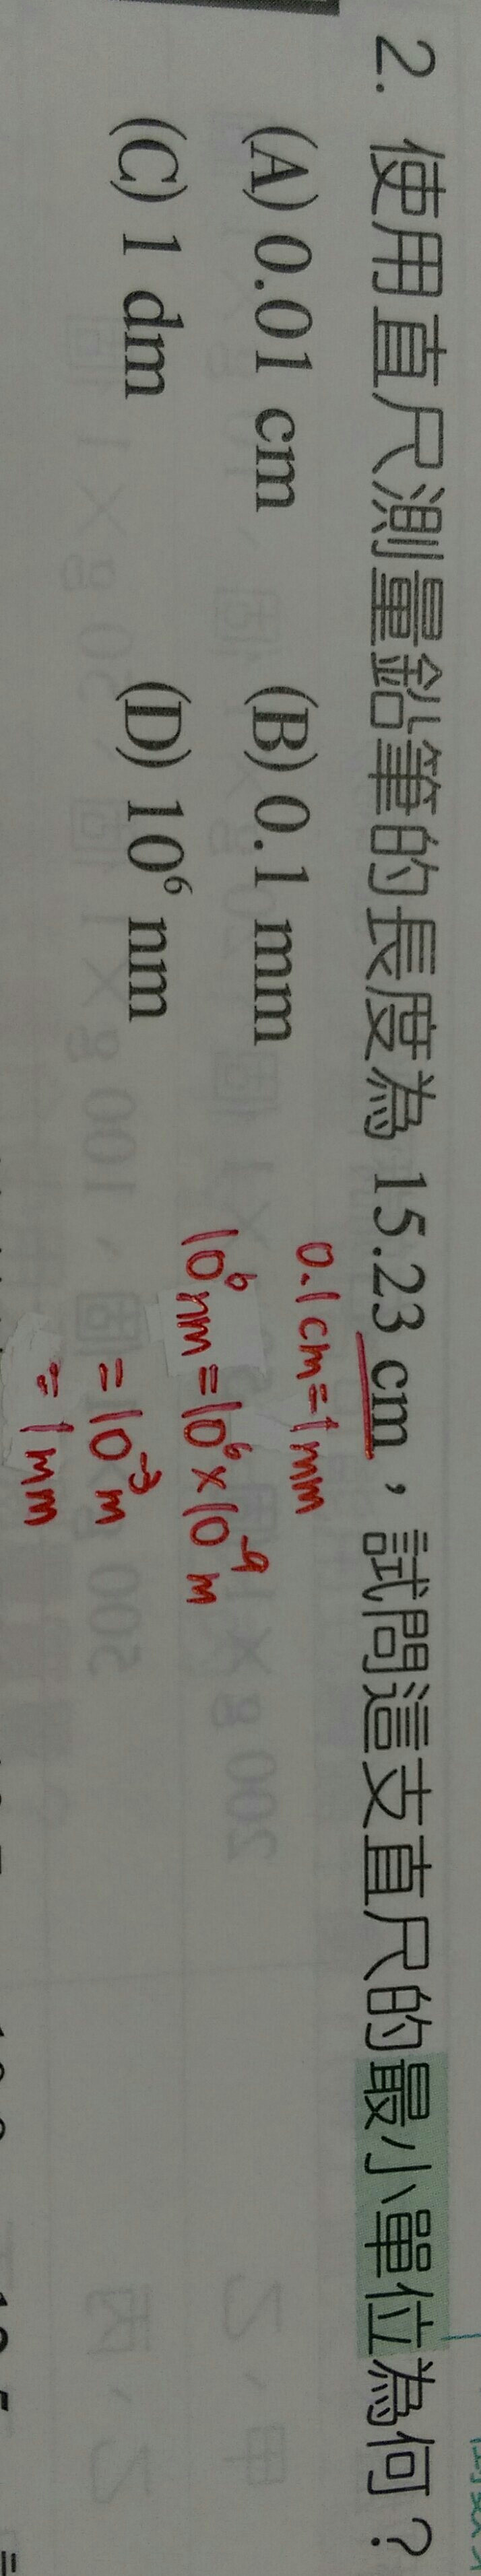 2. 使用直尺測量鉛筆的長度為 15.23 cm，試問這支直尺的最小單位為何？
(A) 0.01 cm (B) 0.1 mm
(C) 1 dm (D) 10⁶ nm
0.1cm=1mm
10⁶nm=10⁶×10⁻⁹m
=10⁻³m
=1mm